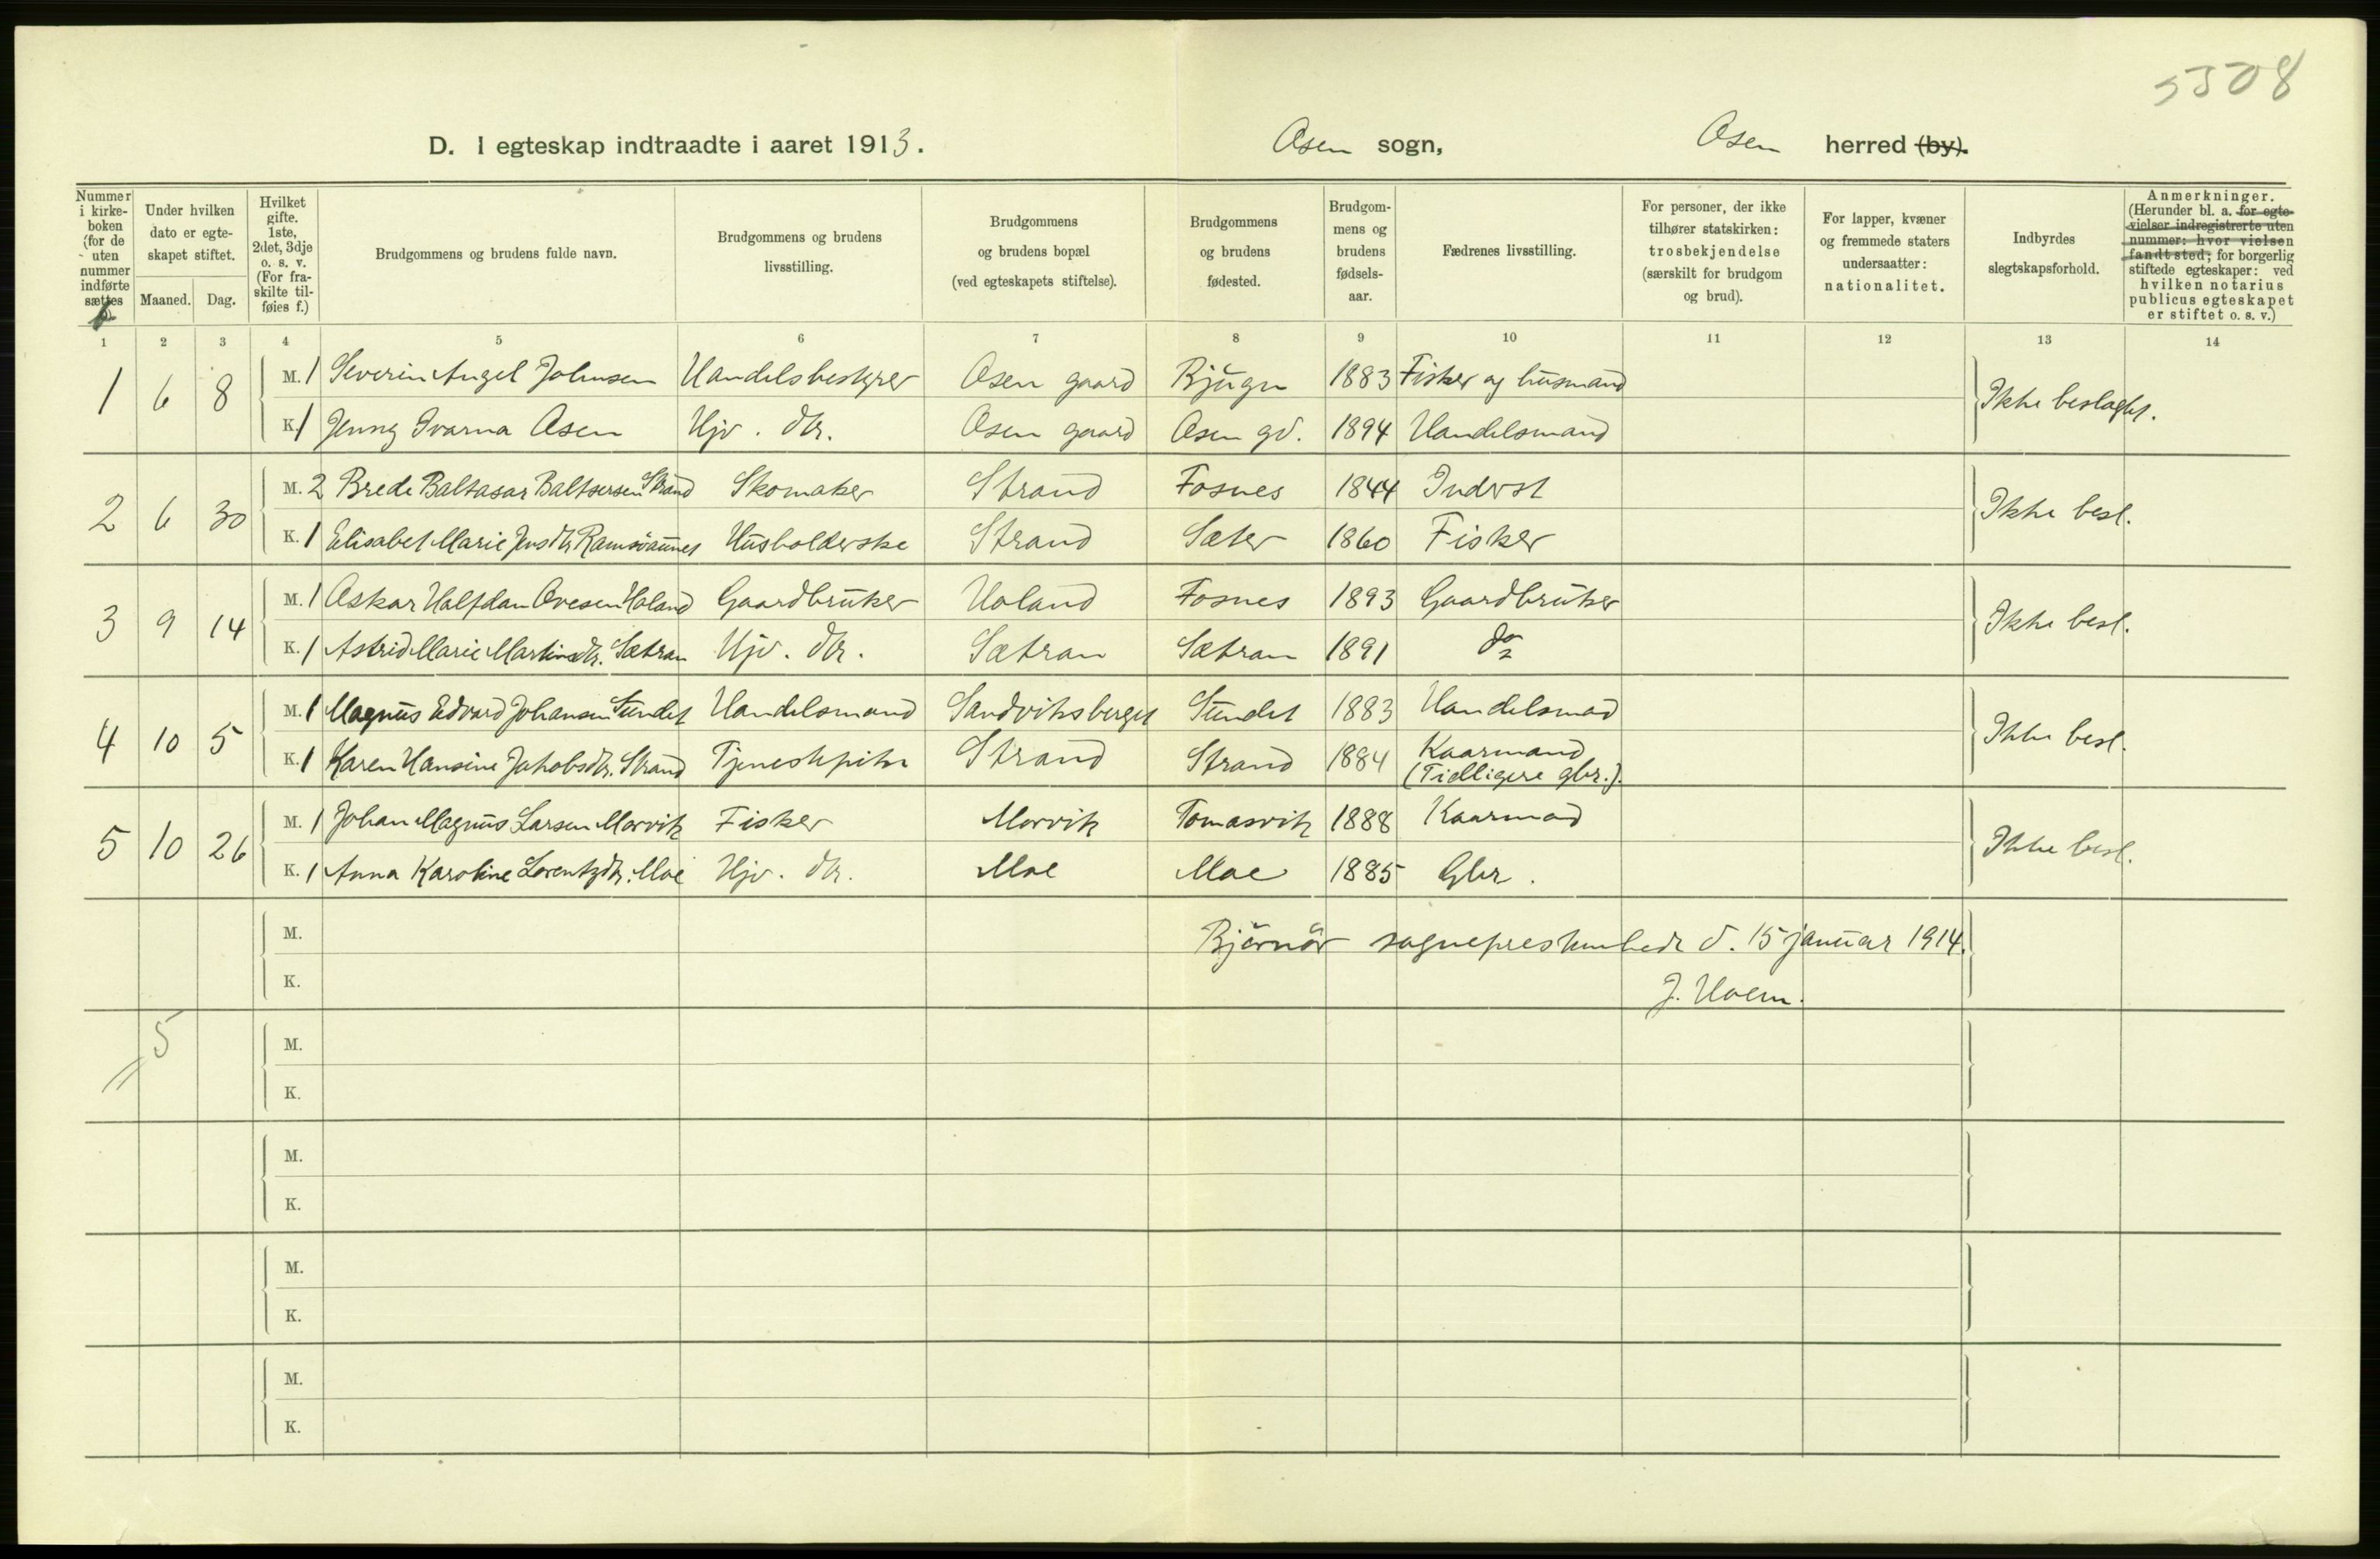 5508
D. I egteskap indtraadte i aaret 1913. Osen sogn, Osen herred (by).
Nummer i kirke-boken (for de uten nummer indførte sættes
Under hvilken dato er egte-skapet stiftet.
Maaned. Dag.
Hvilket gifte. 1ste, 2det, 3dje o. s. v. (For fra-skilte til-føies f.)
Brudgommens og brudens fulde navn.
Brudgommens og brudens livsstilling.
Brudgommens og brudens bopæl (ved egteskapets stiftelse).
Brudgommens og brudens fødested.
Brudgom-mens og brudens fødsels-aar.
Fædrenes livsstilling.
For personer, der ikke tilhører statskirken: trosbekjendelse (særskilt for brudgom og brud).
For lapper, kvæner og fremmede staters undersaatter: nationalitet.
Indbyrdes slegtskapsforhold.
Anmerkninger. (Herunder bl. a. for egte-vielser indregistrerte uten nummer: hvor vielsen fandt sted; for borgerlig stiftede egteskaper: ved hvilken notarius publicus egteskapet er stiftet o. s. v.)
1 2 3 4 5 6 7 8 9 10 11 12 13 14
1 6 8 M. 1 Severin Angel Johnsen Handelsbestyrer Osen gaard Bjugn 1883 Fisker og husmand Ikke beslagtet.
K. 1 Jenny Ivarna Osen Hjv. dtr. Osen gaard Osen gd. 1894 Handelsmand
2 6 30 M. 2 Brede Baltasar Baltsersen Strand Skomaker Strand Fosnes 1844 Inderst Ikke besl.
K. 1 Elisabet Marie Jensdtr Ramsöaunet Husholderske Strand Sæter 1860 Fisker
3 9 14 M. 1 Oskar Halfdan Ovesen Holand Gaardbruker Holand Fosnes 1893 Gaardbruker Ikke besl.
K. 1 Astrid Marie Martinsdtr. Sætran Hjv. dtr. Sætran Sætran 1891 do
4 10 5 M. 1 Magnus Edvard Johansen Sundet Handelsmand Sandviksberget Sundet 1883 Handelsmad Ikke besl.
K. 1 Karen Hansine Jakobsdtr. Strand Tjenestepike Strand Strand 1884 Kaarmand
(Tidligere gbr.).
5 10 26 M. 1 Johan Magnus Larsen Morvik Fisker Morvik Tomasvik 1888 Kaarmad Ikke besl.
K. 1 Anna Karoline Lorentzdtr. Moe Hjv. dtr. Moe Moe 1885 Gbr.
M. Björnör sogneprestembede d. 15 januar 1914.
K. J. Hoem.
5
M.
K.
M.
K.
M.
K.
M.
K.